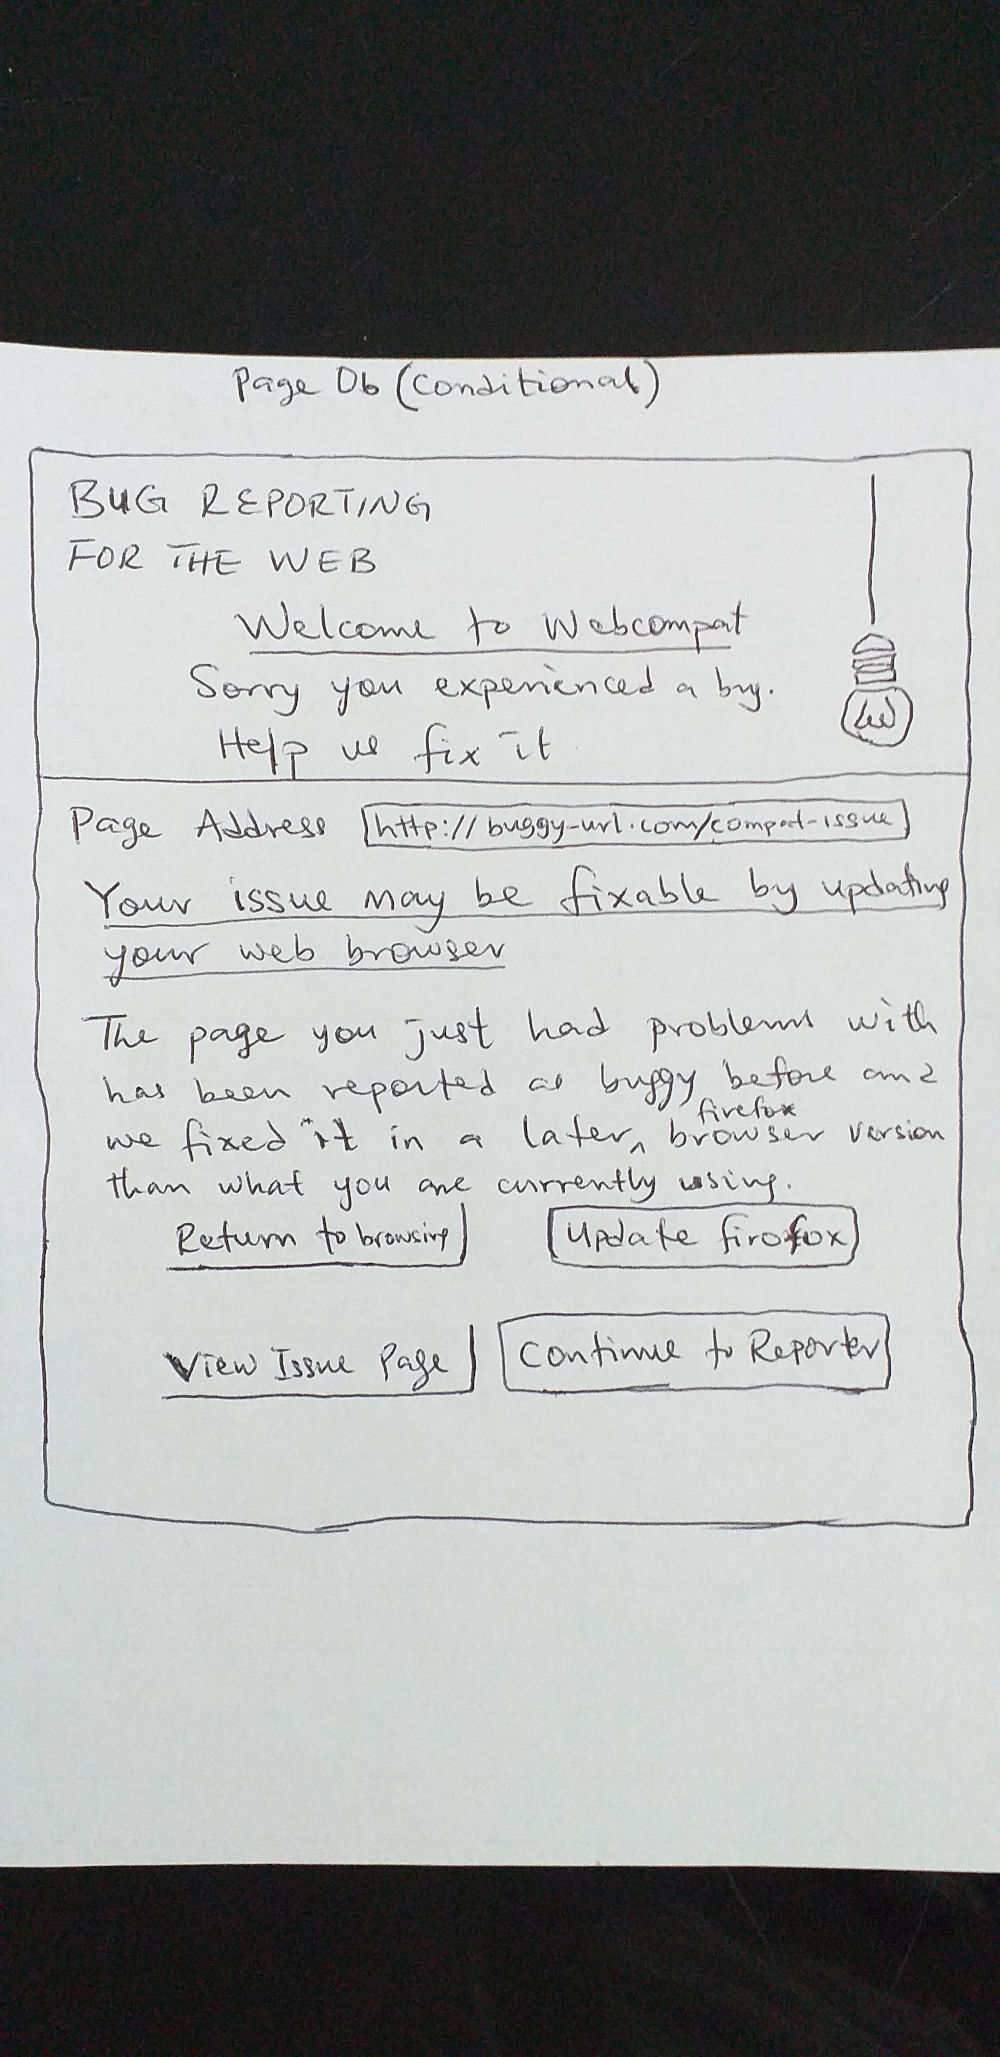 Page 0b (Conditional)
BUG REPORTING
FOR THE WEB
Welcome to Webcompat
Sorry you experienced a bug.
Help us fix it
W
Page Address http://buggy-url.com/compat-issue
Your issue may be fixable by updating
your web browser
The page you just had problems with
has been reported as buggy before and
we fixed it in a later firefox browser version
than what you are currently using.
Return to browsing Update firefox
View Issue Page Continue to Reporter